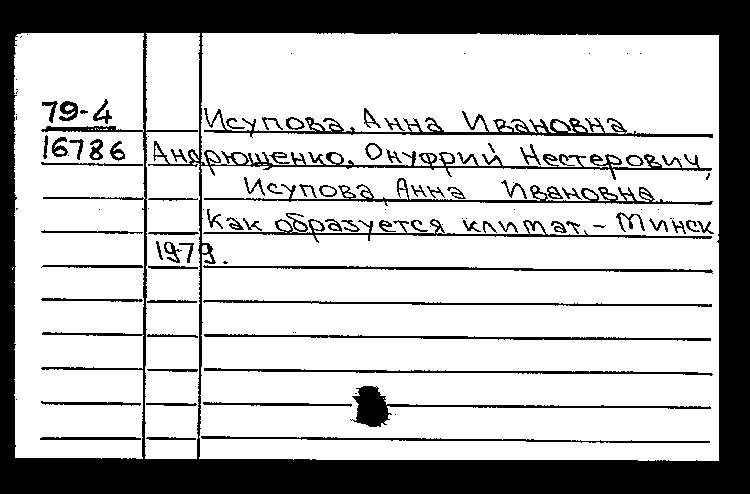 79-4 Исупова, Анна Ивановна
16786 Андрющенко, Онуфрий Нестерович,
Исупова, Анна Ивановна.
Как образуется климат. - Минск,
1979.